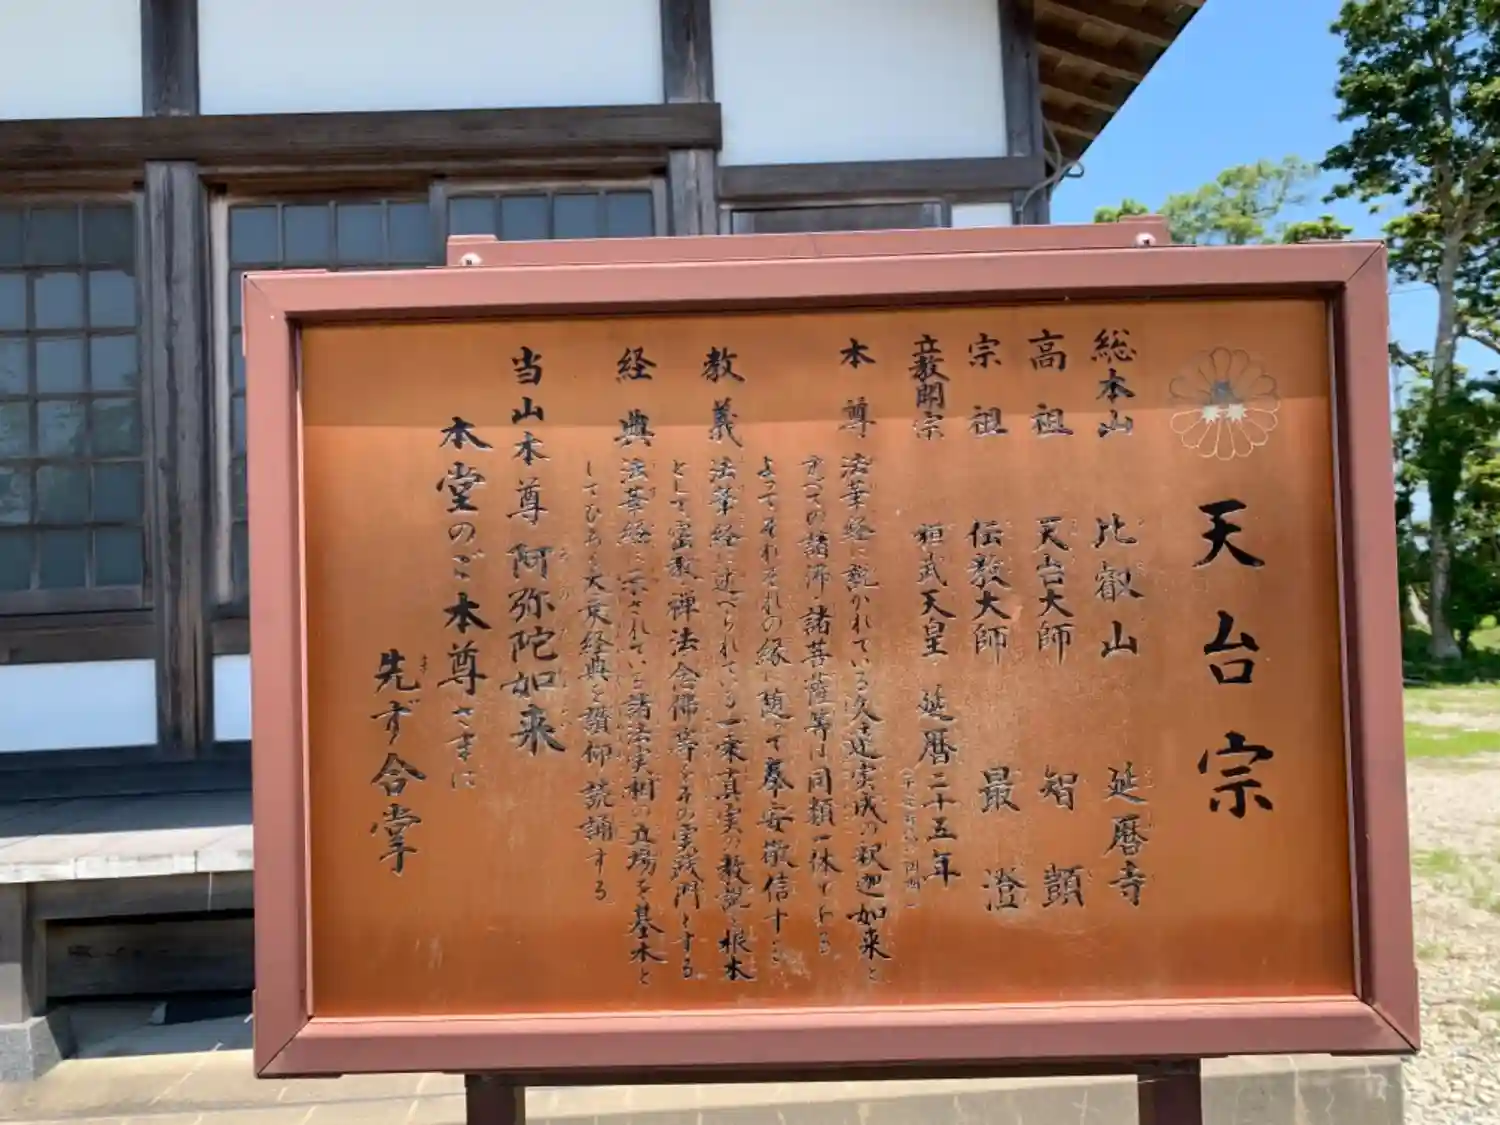 天台宗
総本山 比叡山 延暦寺
高祖 天台大師 智顗
宗祖 伝教大師 最澄
立教開宗 桓武天皇 延暦二十五年
本尊 法華経に説かれている久遠実成の釈迦如来と
すべての諸佛諸菩薩等は同類一体であるによってそれぞれの縁に随って奉安敬信する
教義 法華経に述べられている一乗真実の教説を根本
として密教禅法念佛等をその実践門とする
経典 法華経に示されている諸法実相の立場を基本と
してひろく大乗経典を讃仰読誦する
当山本尊 阿弥陀如来
本堂のご本尊さまに
先ず合掌